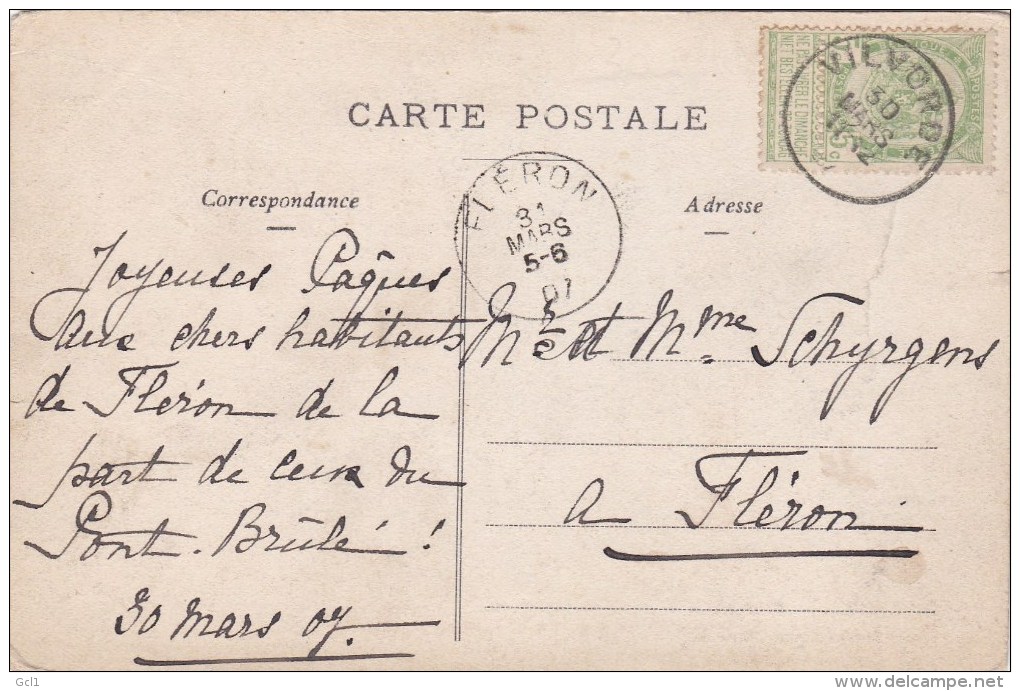 CARTE POSTALE
Correspondance
Adresse
Joyeuses Pâques
aux chers habitants
de Fléron de la
part de ceux du
Pont-Brûlé!
30 Mars 07.
Mr et Mme Schyrgens
à Fléron
VILVORDE
30
MARS
12
FLÉRON
31
MARS
5-6
07
NE PAS LIVRER LE DIMANCHE
POSTES
5 C
Gcl1
www.delcampe.net